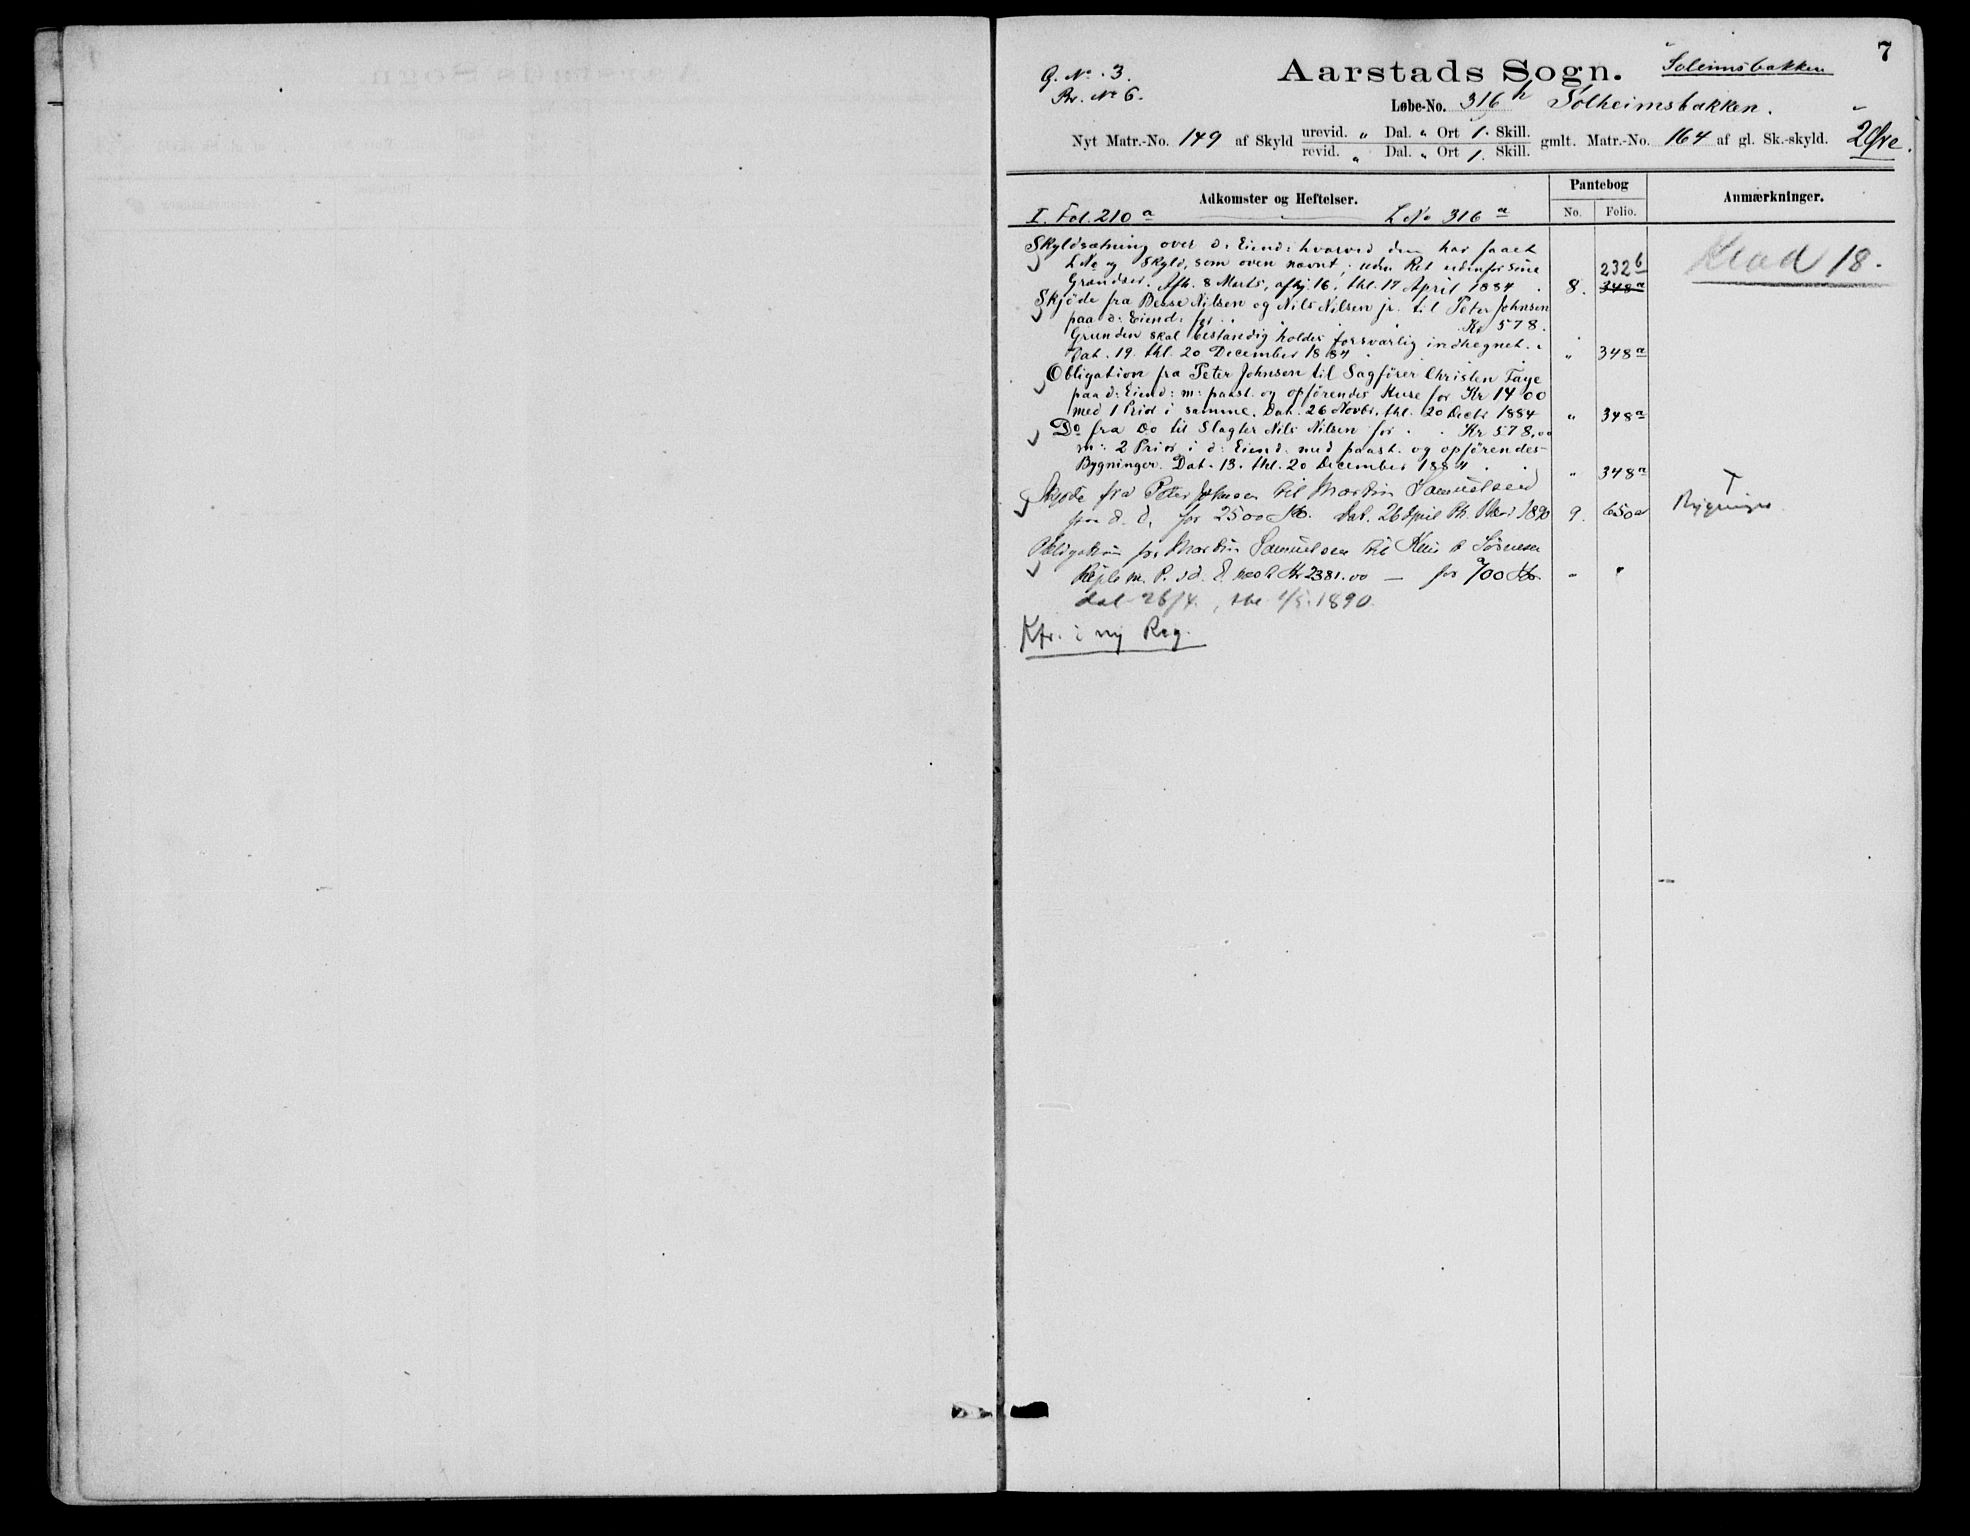 7
G. No. 3.
Br. No 6.
Aarstads Sogn. Soleimsbakken
Løbe-No. 316 h Solheimsbakken.
Nyt Matr.-No. 149 af Skyld urevid. „ Dal. „ Ort 1. Skill. gmlt. Matr.-No. 164 af gl. Sk.-skyld. 2 Øre.
revid. „ Dal. „ Ort 1. Skill.
Adkomster og Heftelser. Pantebog Anmærkninger.
No. Folio.
I. Fol. 210 a L No 316 a
Skyldsætning over d: Eiend: hvorved den har faaet
L No og Skyld, som oven nævnt; uden Ret udenfor sine 232 b
Grændser. Afh. 8 Marts, afhj. 16, thl. 17 April 1884 8. 348 a
18.
Skjöde fra Besse Nilsen og Nils Nilsen jr. til Peter Johnsen
paa d: Eiend: for Kr 578.
Grunden skal bestandig holdes forsvarlig indhegnet.
Dat. 19. thl. 20 December 1884 „ 348 a
Obligation fra Peter Johnsen til Sagfører Christen Faye
paa d: Eiend: m: paast. og opförendes Huse for Kr 1400
med 1 Prior i samme. Dat. 26 Novbr. thl. 20 Decbr 1884 „ 348 a
Do fra Do til Slagter Nils Nilsen for Kr 578,00
m: 2 Prior i d: Eiend. med paast. og opförendes
Bygninger. Dat. 13. thl. 20 December 1884 „ 348 a
Skjøde fra Peter Johnsen til Martin Samuelsen
paa d. d. for 2500 Kr. Dat. 26 April Th. 1890 9. 650 a
Bygninger
Obligation fra Martin Samuelsen til Sörensen
m. P. Kr 2381.00 — for 700 Kr. „ „
dat 26/4. , thl 1/5. 1890.
Kfr. i ny Reg.